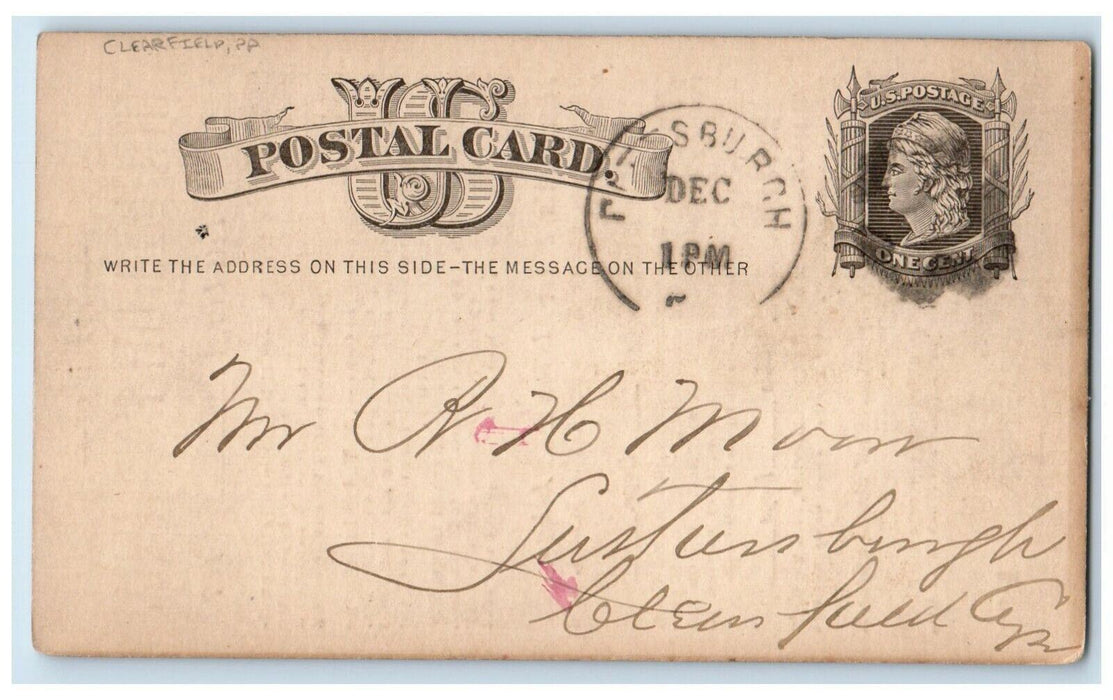 CLEARFIELD, PA
US
POSTAL CARD.
U.S. POSTAGE
ONE CENT
PITTSBURGH
DEC
1 PM
WRITE THE ADDRESS ON THIS SIDE-THE MESSAGE ON THE OTHER
Mr R H Moore
Clearfield Co